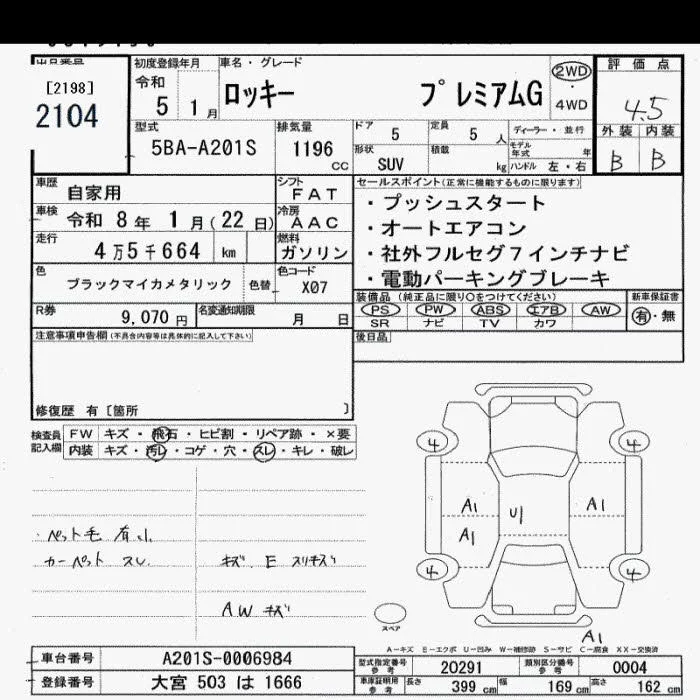 出品番号
[2198]
2104
初度登録年月
令和
5 1月
車名・グレード
ロッキー プレミアムG
2WD
・
4WD
評価点
4.5
外装 内装
B B
型式
5BA-A201S
排気量
1196 cc
ドア 5
定員 5 人
ディーラー・並行
形状
SUV
積載
kg
モデル年式 年
ハンドル 左・右
車歴 自家用
シフト FAT
車検 令和 8年 1月(22日)
冷房 AAC
走行 4万5千664 km
燃料 ガソリン
色 ブラックマイカメタリック
色替
色コード X07
R券 9,070 円
名変通知期限 月 日
セールスポイント(正常に機能するものに限ります)
・プッシュスタート
・オートエアコン
・社外フルセグ7インチナビ
・電動パーキングブレーキ
装備品 (純正品に限り○をつけてください)
新車保証書
PS PW ABS エアB AW
SR ナビ TV カワ
有・無
後日品
注意事項申告欄(不具合内容等は具体的に記入して下さい)
修復歴 有〔箇所 〕
検査員記入欄
FW キズ・飛石・ヒビ割・リペア跡・×要
内装 キズ・汚レ・コゲ・穴・スレ・キレ・破レ
・ペット毛 有小
カーペット スレ
キズ E スリキズ
AW キズ
4 4
A1 U1 A1
A1
4 4
スペア
A1
A-キズ E-エクボ U-凹み W-補修跡 S-サビ C-腐食 XX-交換済
車台番号 A201S-0006984
登録番号 大宮 503 は 1666
型式指定番号 参考 20291
類別区分番号 参考 0004
車庫証明用 参考 長さ 399 cm 幅 169 cm 高さ 162 cm